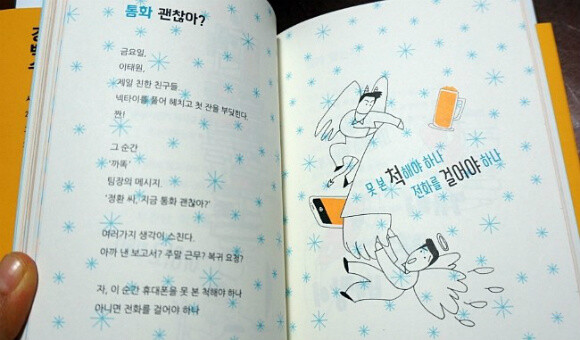 통화 괜찮아?
금요일,
이태원,
제일 친한 친구들
넥타이를 풀어 헤치고 첫 잔을 부딪힌다.
짠!
그 순간
'까똑'
팀장의 메시지.
'정환 씨, 지금 통화 괜찮아?'
여러가지 생각이 스친다.
아까 낸 보고서? 주말 근무? 복귀 요청?
자, 이 순간 휴대폰을 못 본 척해야 하나
아니면 전화를 걸어야 하나
못 본 척해야 하나
전화를 걸어야 하나